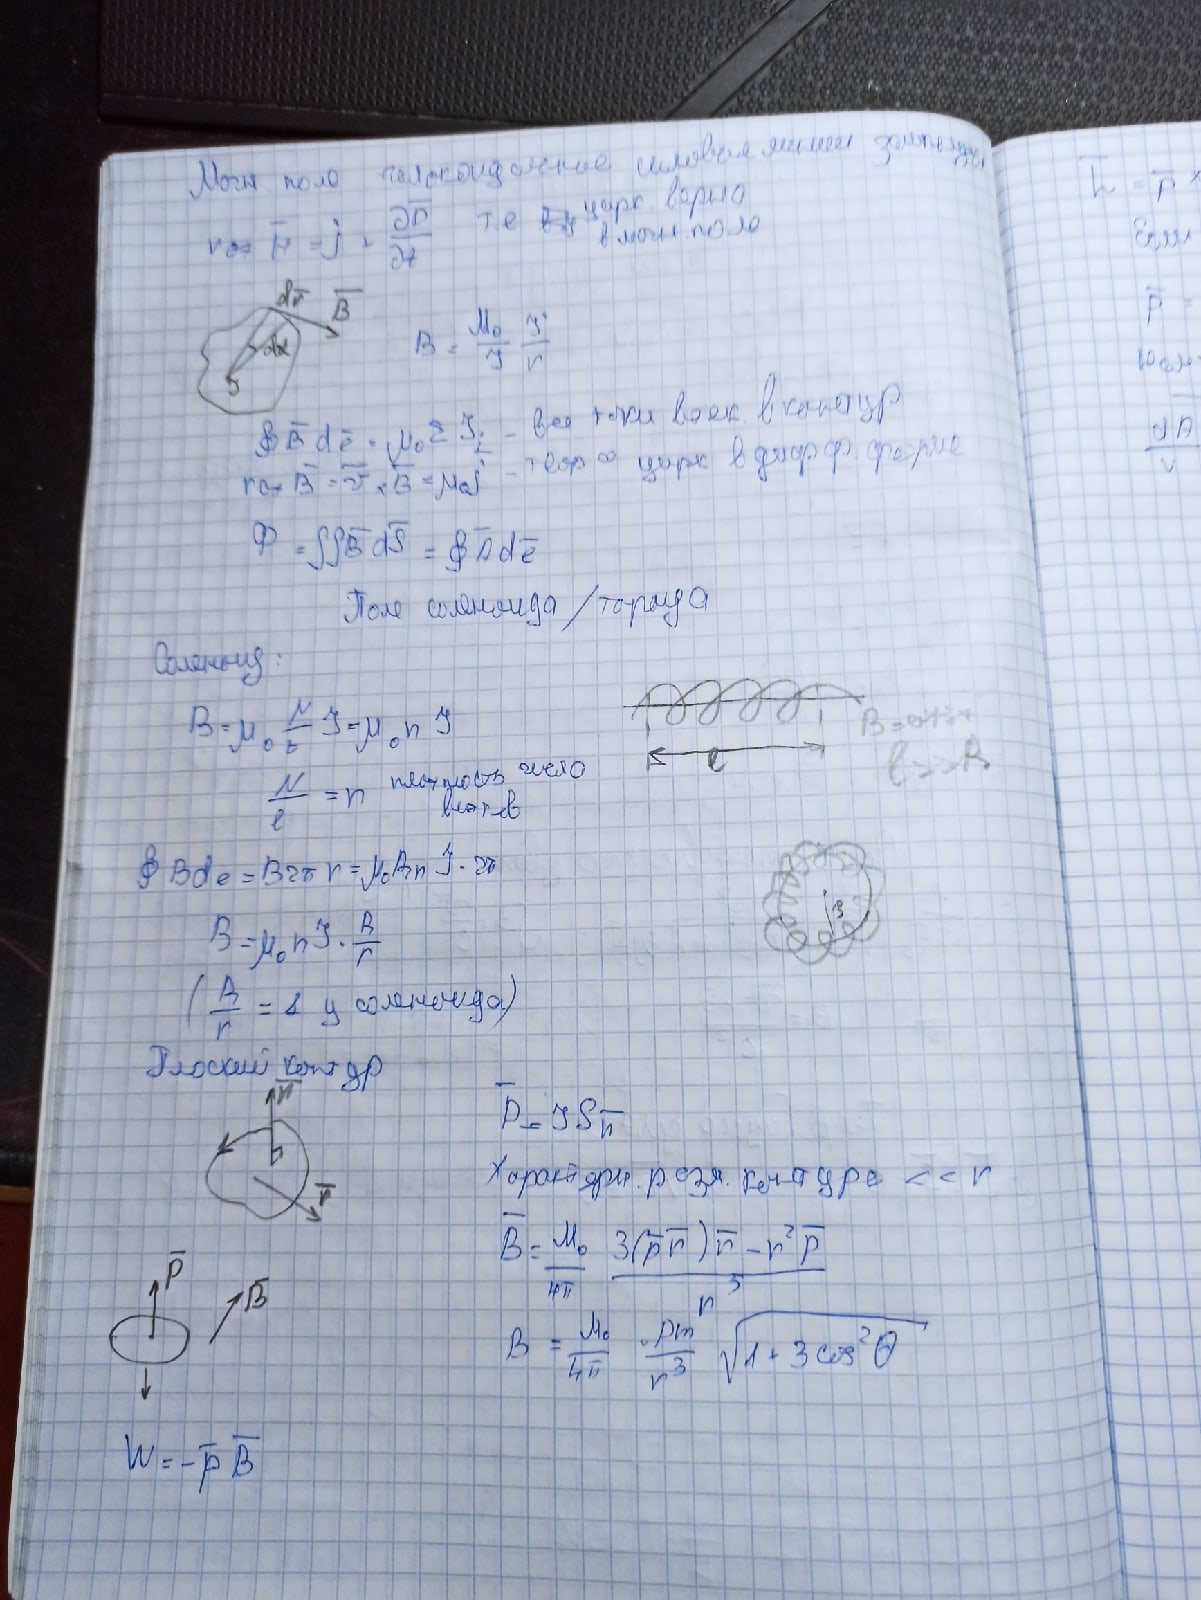 Магн поле силовые линии замкнуты
rot H̅ = j + ∂D̅/∂t т.е цирк. верно
в магн. поле
dr̅ B̅
dα
B = μ₀/J J/r
∮ B̅ dē = μ₀ Σ Jᵢ - все токи вхек. в контур
rot B̅ = ∇̅ × B̅ = μ₀j - теор о цирк в дифф. форме
Ф = ∬B̅ dS̅ = ∮ A̅ dē
Поле соленоида/тороида
Соленоид:
B = μ₀ N/l J = μ₀ n J
l
B = const
l >> R
N/l = n плотность число
витков
∮ B de = B 2π r = μ₀ R n J · 2π
B = μ₀ n J · R/r
(R/r = 1 у соленоида)
Плоский контур
n̅
r̅
P̅ = J S n̅
Характерн. разм. контура << r
B̅ = μ₀/4π 3(p̅ r̅) r̅ - r² p̅ / r⁵
P̅ B̅
B = μ₀/4π pm/r³ √1 + 3 cos² θ
W = - p̅ B̅
p̅ ×
Если
p̅ =